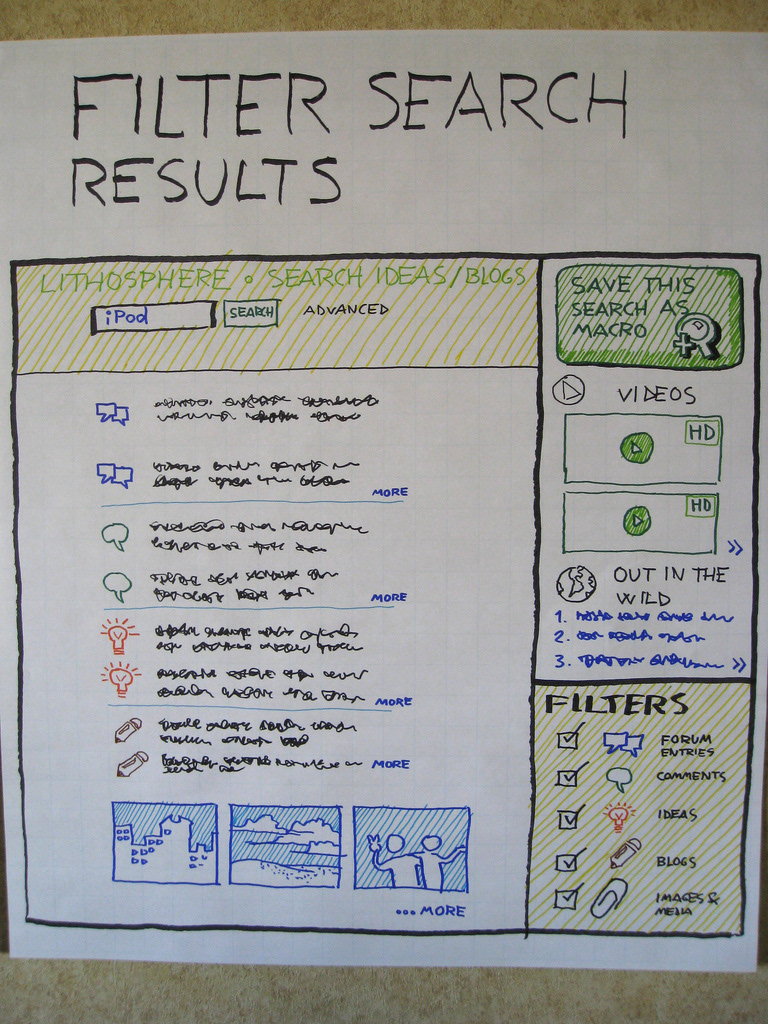 FILTER SEARCH
RESULTS
LITHOSPHERE • SEARCH IDEAS/BLOGS
iPod
SEARCH
ADVANCED
MORE
MORE
MORE
MORE
... MORE
SAVE THIS
SEARCH AS
MACRO
VIDEOS
HD
HD
»
OUT IN THE
WILD
1.
2.
3. »
FILTERS
FORUM
ENTRIES
COMMENTS
IDEAS
BLOGS
IMAGES &
MEDIA